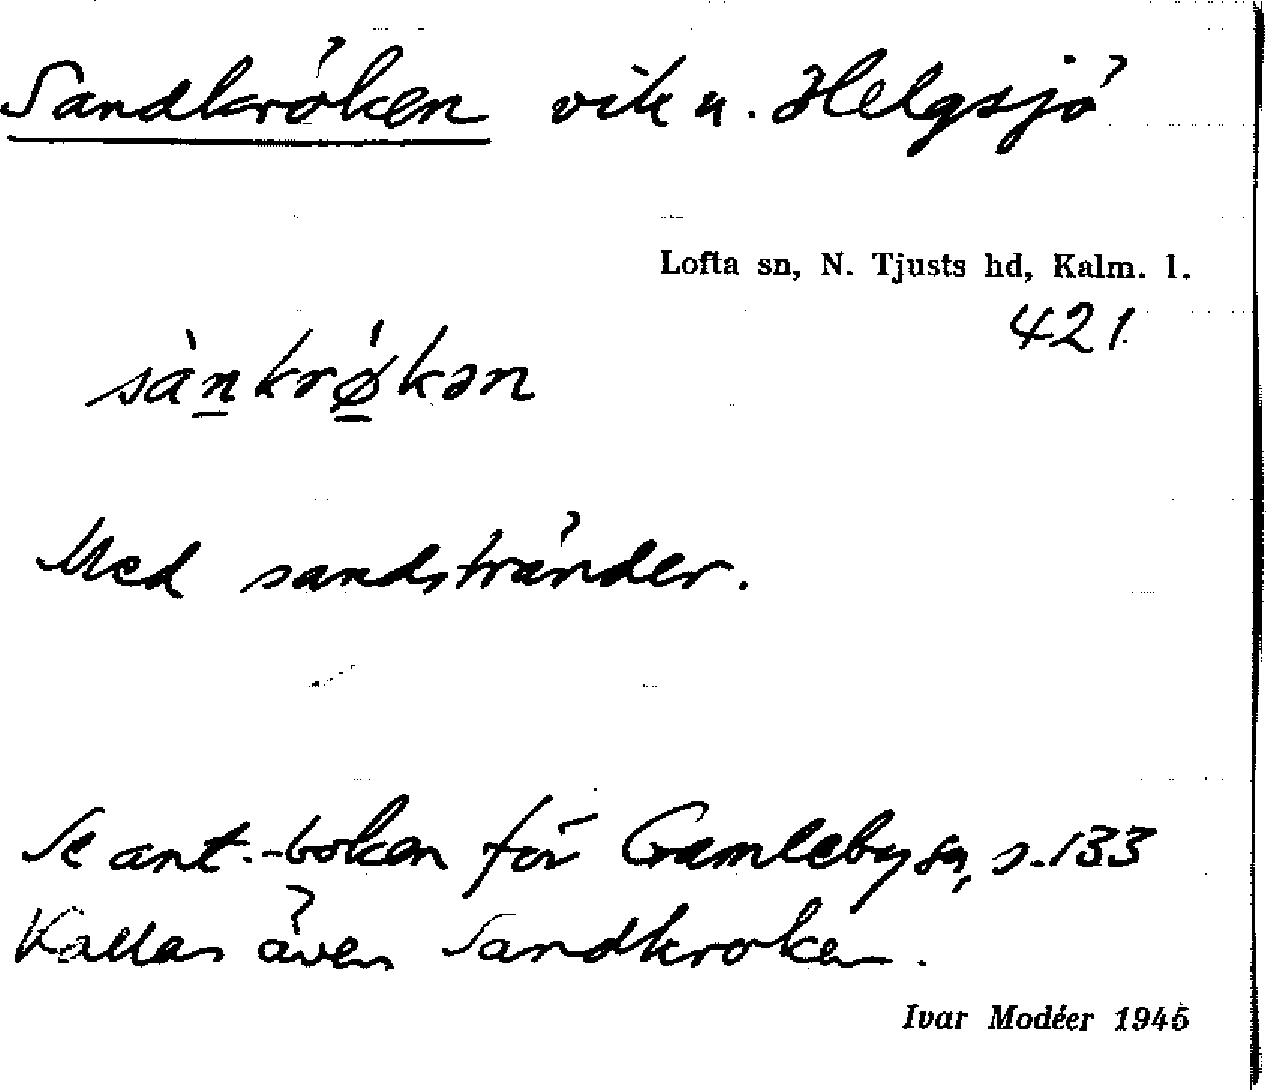 Sandkröken vik u. Helgsjö
Lofta sn, N. Tjusts hd, Kalm. l.
421
sàn̲krǿ̲kən
Med sandstränder.
Se ant.-boken för Gamleby sn, s. 133
Kallas även Sandkroken.
Ivar Modéer 1945